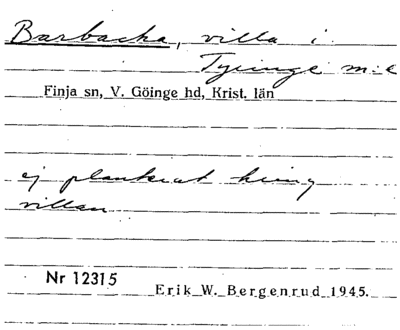 Barbacka, villa i
Tyringe m:e
Finja sn, V. Göinge hd, Krist. län
ej plankrat kring
villan
Nr 12315
Erik W. Bergenrud 1945.